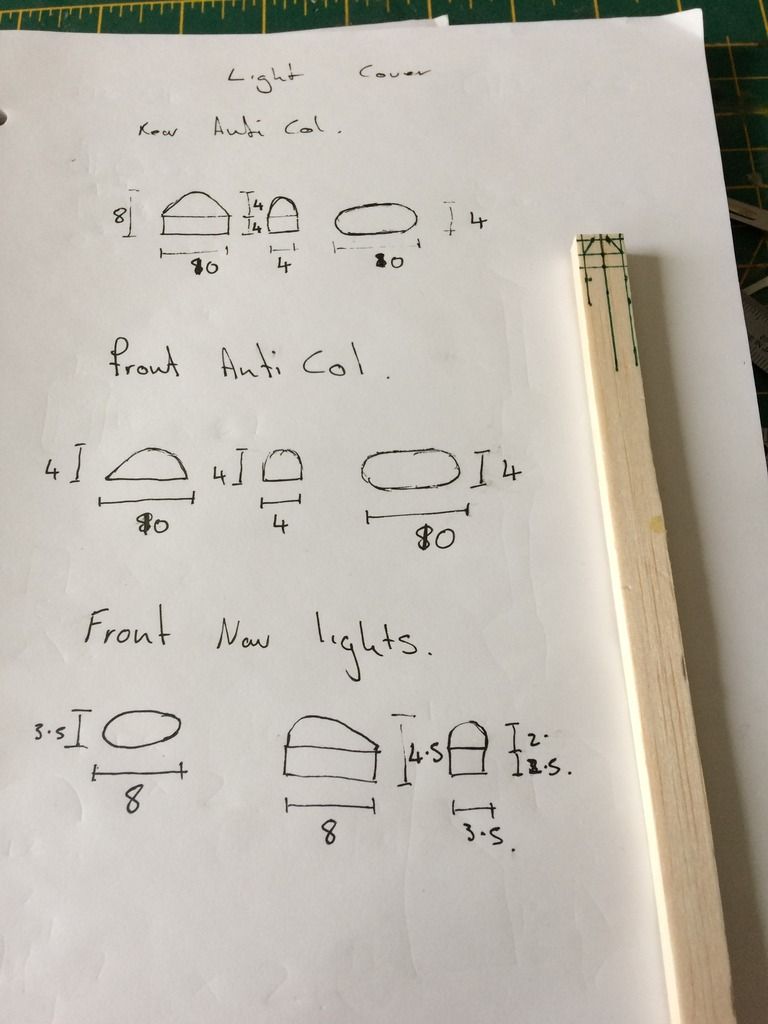 Light Cover
Rear Anti Col.
8 4 4 4
10 4 10
Front Anti Col.
4 4 4
10 4 10
Front Nav lights.
3.5 4.5 2.
2.5.
8 8 3.5.